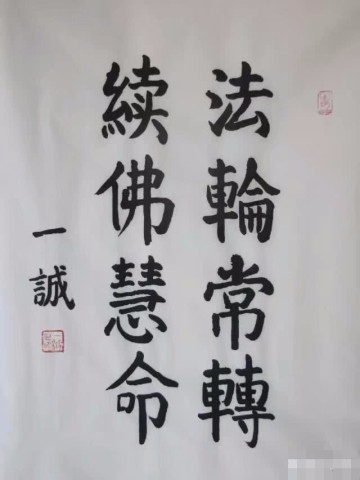 法輪常轉
續佛慧命
一誠